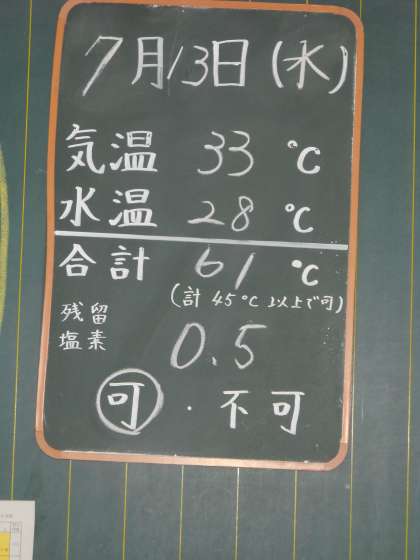 7月13日(水)
気温 33 ℃
水温 28 ℃
合計 61 ℃
(計 45℃ 以上で可)
残留
塩素 0.5
可・不可